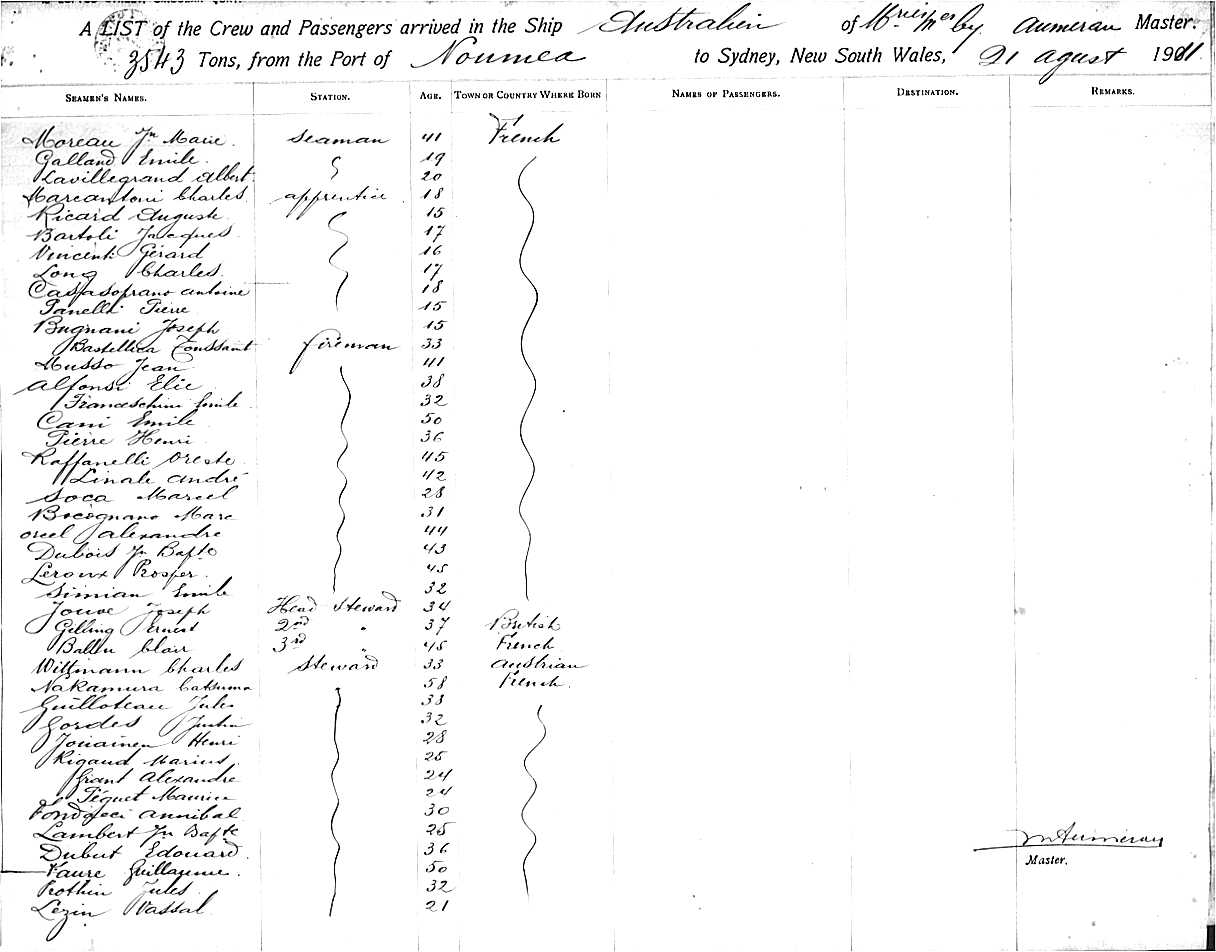 A LIST of the Crew and Passengers arrived in the Ship Australien of Mries Mes by Aumeran Master.
3543 Tons, from the Port of Noumea to Sydney, New South Wales, 21 agust 1901.
SEAMEN'S NAMES. STATION. AGE. TOWN OR COUNTRY WHERE BORN NAMES OF PASSENGERS. DESTINATION. REMARKS.
Moreau Jn Marie. Seaman 41 French
Galland Emile. 19
Lavillegrand Albert. 20
Marcantoni Charles apprentice 18
Ricard Auguste 15
Bartoli Jacques 17
Vincenti Gérard 16
Long Charles. 17
Casasoprano antoine 18
Panelli Pierre 15
Bugnani Joseph 15
Bastellica Toussaint fireman 33
Musso Jean 41
Alfonsi Elie 38
Franceschini Emile 32
Cani Emile 50
Pierre Henri 36
Raffanelli Oreste 45
Linale André 42
Soca Marcel 28
Bocognano Marc 31
orcel alexandre 44
Dubois Jn Bapte 43
Leroux Prosper. 45
Simian Emile 32
Jouve Joseph Head Steward 34
Gelling Ernest 2nd " 37 British
Ballu Clair 3rd " 45 French
Wittmann Charles Steward 33 Austrian
Nakamura Catsuma 58 French.
Guilloteau Jules 38
Gordes Justin 32
Jouainen Henri 28
Rigaud Marius. 25
Grant Alexandre 24
Péquet Maurice 24
annibal 30
Lambert Jn Bapte 25
Dubut Edouard. 36
M Aumeran
Master.
Faure Guillaume. 50
Rothin Jules 32
Lezin Vassal 21